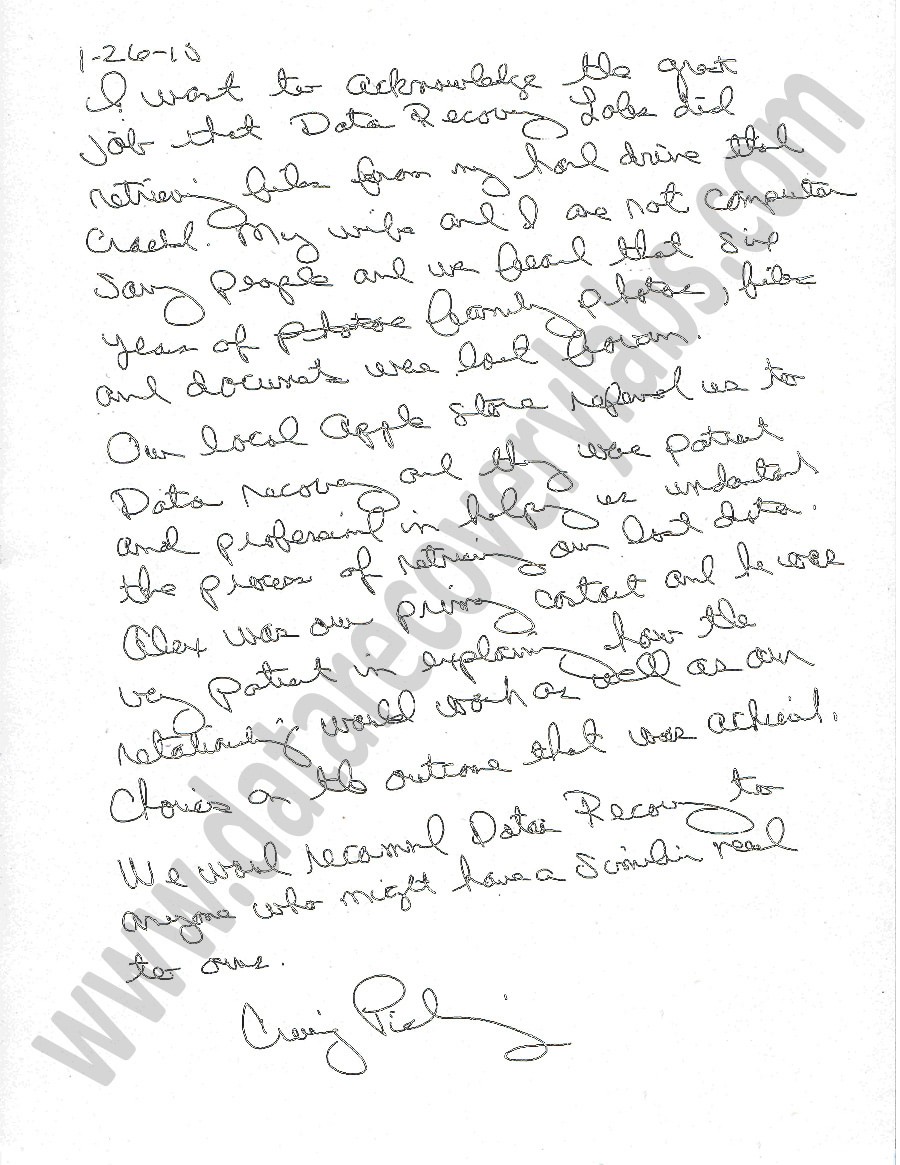 1-26-10
I want to acknowledge the great
job that Data Recovery Labs did
retrieving files from my hard drive that
crashed. My wife and I are not computer
savy people and we feared that six
years of photos family photos, files
and documents were lost forever.
Our local Apple store referred us to
Data recovery and they were patient
and professional in helping us understand
the process of retrieving our lost data.
Alex was our primary contact and he was
very patient in explaining how the
would work as well as our
choices on the outcome that was achieved.
We would recommend Data Recovery to
anyone who might have a similar need
to ours.
Craig
www.datarecoverylabs.com